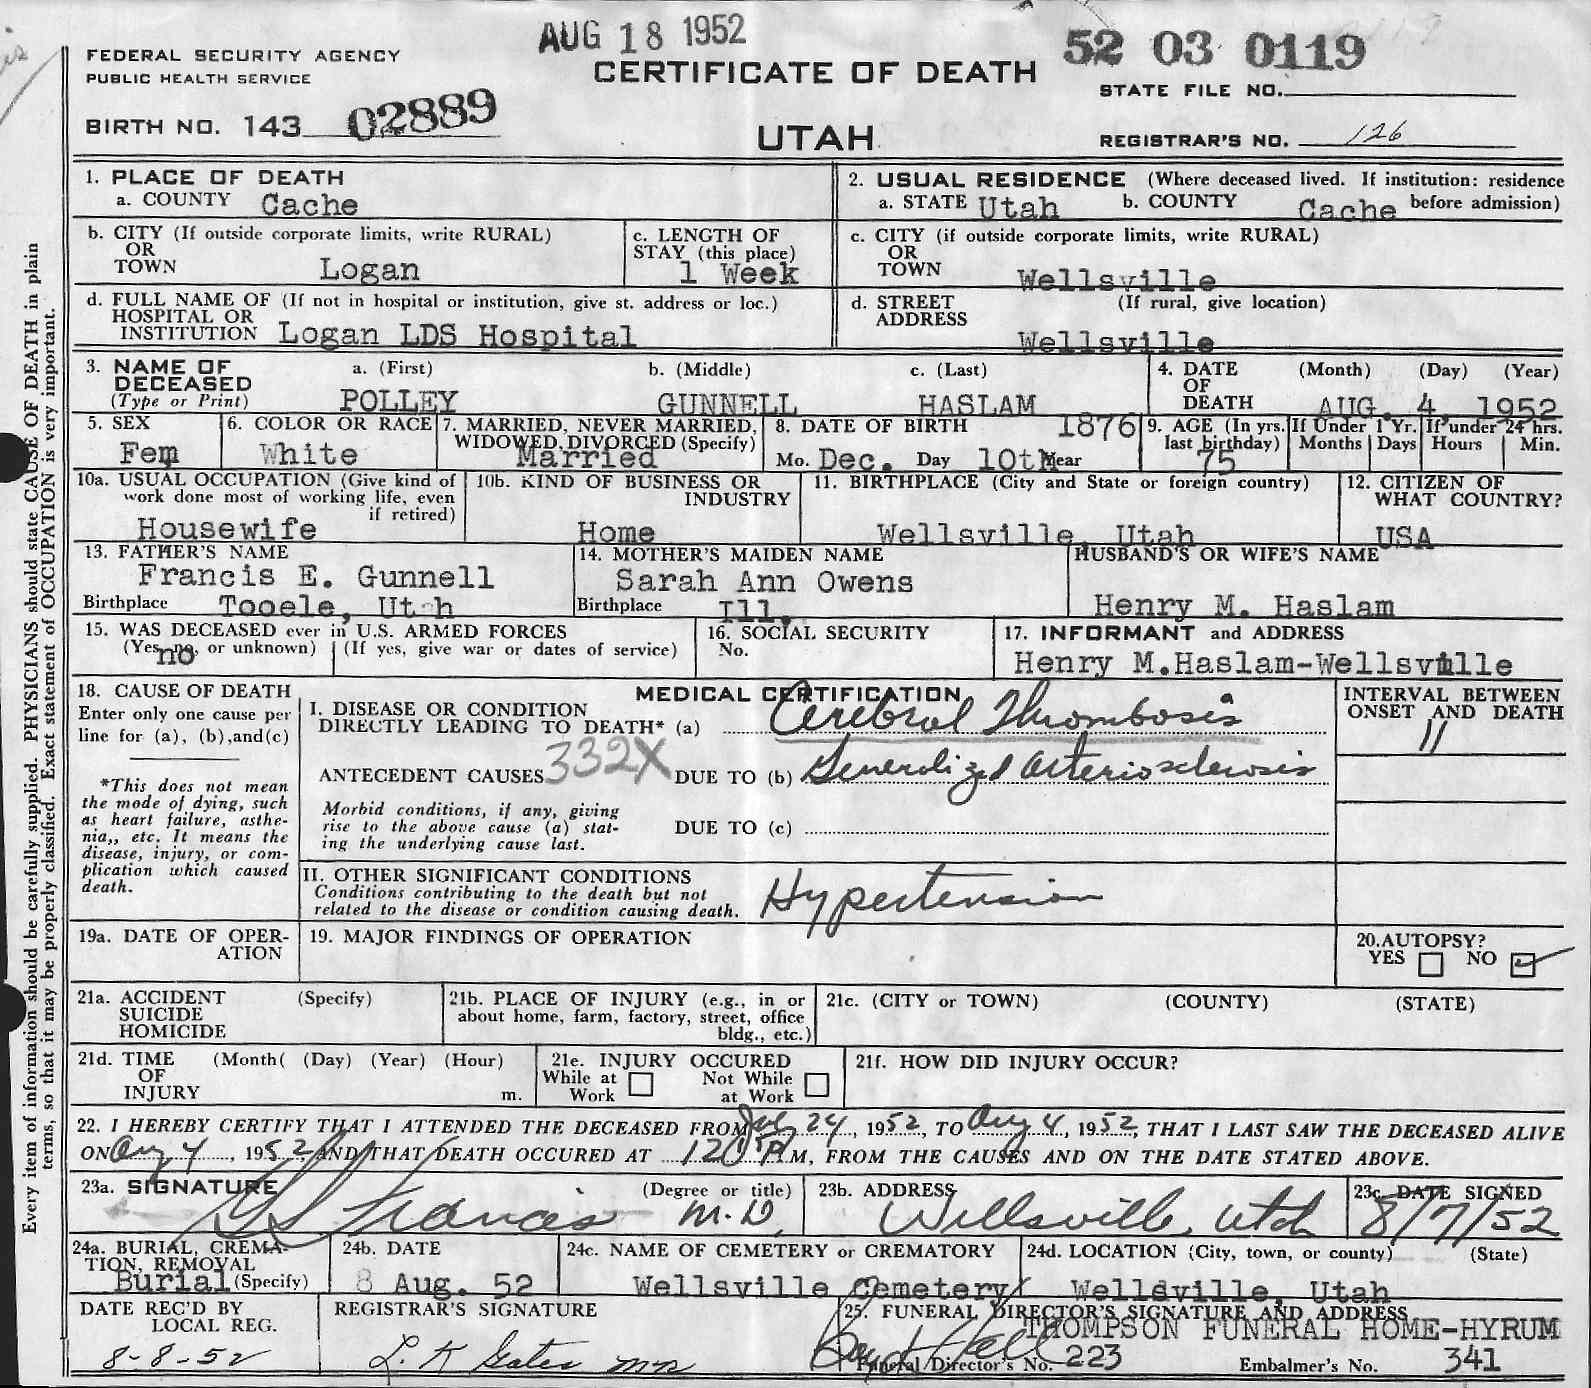 AUG 18 1952
52 03 0119
FEDERAL SECURITY AGENCY
PUBLIC HEALTH SERVICE
CERTIFICATE OF DEATH
STATE FILE NO.
BIRTH NO. 143 02889
UTAH
REGISTRAR'S NO. 126
Every item of information should be carefully supplied. PHYSICIANS should state CAUSE OF DEATH in plain
terms, so that it may be properly classified. Exact statement of OCCUPATION is very important.
1. PLACE OF DEATH
a. COUNTY Cache
2. USUAL RESIDENCE (Where deceased lived. If institution: residence
a. STATE Utah b. COUNTY Cache before admission)
b. CITY (If outside corporate limits, write RURAL)
OR
TOWN Logan
c. LENGTH OF
STAY (this place)
1 Week
c. CITY (if outside corporate limits, write RURAL)
OR
TOWN Wellsville
d. FULL NAME OF (If not in hospital or institution, give st. address or loc.)
HOSPITAL OR
INSTITUTION Logan LDS Hospital
d. STREET (If rural, give location)
ADDRESS
Wellsville
3. NAME OF a. (First) b. (Middle) c. (Last)
DECEASED
(Type or Print) POLLEY GUNNELL HASLAM
4. DATE (Month) (Day) (Year)
OF
DEATH AUG. 4, 1952
5. SEX
Fem
6. COLOR OR RACE
White
7. MARRIED, NEVER MARRIED,
WIDOWED, DIVORCED (Specify)
Married
8. DATE OF BIRTH 1876
Mo. Dec. Day 10th Year
9. AGE (In yrs.
last birthday)
75
If Under 1 Yr.
Months Days
If under 24 hrs.
Hours Min.
10a. USUAL OCCUPATION (Give kind of
work done most of working life, even
if retired)
Housewife
10b. KIND OF BUSINESS OR
INDUSTRY
Home
11. BIRTHPLACE (City and State or foreign country)
Wellsville, Utah
12. CITIZEN OF
WHAT COUNTRY?
USA
13. FATHER'S NAME
Francis E. Gunnell
Birthplace Tooele, Utah
14. MOTHER'S MAIDEN NAME
Sarah Ann Owens
Birthplace Ill.
HUSBAND'S OR WIFE'S NAME
Henry M. Haslam
15. WAS DECEASED ever in U.S. ARMED FORCES
(Yes, no, or unknown) (If yes, give war or dates of service)
no
16. SOCIAL SECURITY
No.
17. INFORMANT and ADDRESS
Henry M.Haslam-Wellsville
18. CAUSE OF DEATH
Enter only one cause per
line for (a), (b),and(c)
*This does not mean
the mode of dying, such
as heart failure, asthe-
nia,, etc. It means the
disease, injury, or com-
plication which caused
death.
MEDICAL CERTIFICATION
I. DISEASE OR CONDITION
DIRECTLY LEADING TO DEATH* (a) Cerebral Thrombosis
ANTECEDENT CAUSES 332X DUE TO (b) Generalized arteriosclerosis
Morbid conditions, if any, giving
rise to the above cause (a) stat-
ing the underlying cause last.
DUE TO (c)
INTERVAL BETWEEN
ONSET AND DEATH
11
II. OTHER SIGNIFICANT CONDITIONS
Conditions contributing to the death but not
related to the disease or condition causing death.
Hypertension
19a. DATE OF OPER-
ATION
19. MAJOR FINDINGS OF OPERATION
20.AUTOPSY?
YES NO
21a. ACCIDENT (Specify)
SUICIDE
HOMICIDE
21b. PLACE OF INJURY (e.g., in or
about home, farm, factory, street, office
bldg., etc.)
21c. (CITY or TOWN) (COUNTY) (STATE)
21d. TIME (Month( (Day) (Year) (Hour)
OF
INJURY m.
21e. INJURY OCCURED
While at Work Not While at Work
21f. HOW DID INJURY OCCUR?
22. I HEREBY CERTIFY THAT I ATTENDED THE DECEASED FROM July 24, 1952, TO Aug 4, 1952, THAT I LAST SAW THE DECEASED ALIVE
ON Aug 4, 1952, AND THAT DEATH OCCURED AT P M, FROM THE CAUSES AND ON THE DATE STATED ABOVE.
23a. SIGNATURE (Degree or title)
Francis M.D.
23b. ADDRESS
Wellsville, Utah
23c. DATE SIGNED
8/7/52
24a. BURIAL, CREMA-
TION, REMOVAL
Burial (Specify)
24b. DATE
8 Aug. 52
24c. NAME OF CEMETERY or CREMATORY
Wellsville Cemetery
24d. LOCATION (City, town, or county) (State)
Wellsville, Utah
DATE REC'D BY
LOCAL REG.
8-8-52
REGISTRAR'S SIGNATURE
L. K Gates MD
25. FUNERAL DIRECTOR'S SIGNATURE AND ADDRESS
THOMPSON FUNERAL HOME-HYRUM
Funeral Director's No. 223 Embalmer's No. 341